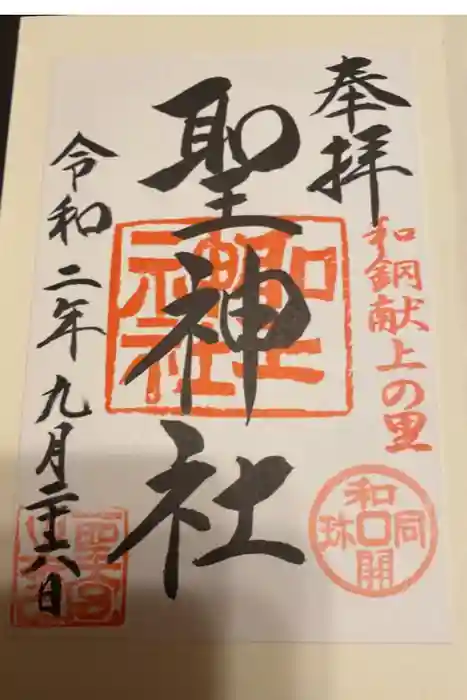 奉拝
和銅献上の里
和同開珎
聖神社
令和二年九月二十六日